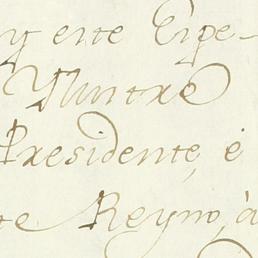 y este Expe-
Yluxtre
Presidente, è
te Reyno, à